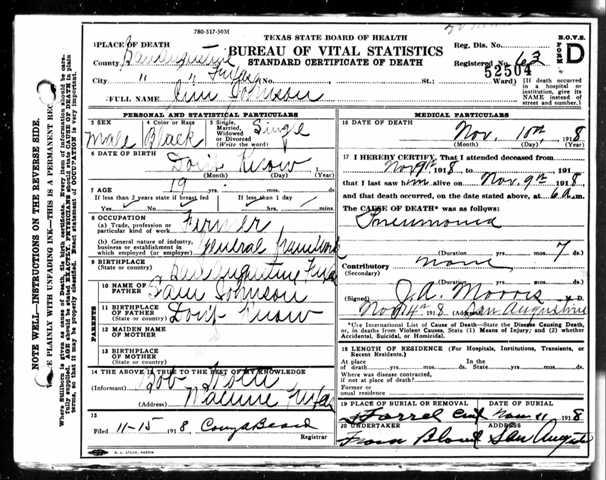 780-517-50M
TEXAS STATE BOARD OF HEALTH
BUREAU OF VITAL STATISTICS
STANDARD CERTIFICATE OF DEATH
B.O.V.S.
FORM
D
1 PLACE OF DEATH
County
City " " Texas
No. St.; Ward)
Reg. Dis. No.
Registered No. 62
52504
(If death occurred in a hospital or institution, give its NAME instead of street and number.)
2 FULL NAME Jim Johnson
PERSONAL AND STATISTICAL PARTICULARS
3 SEX
Male
4 Color or Race
Black
5 Single, Married, Widowed or Divorced (Write the word)
Single
6 DATE OF BIRTH
Don't Know
(Month) (Day) (Year)
7 AGE
19 yrs. mos. ds.
If less than 2 years state if breast fed If less than 1 day
hrs. min.
8 OCCUPATION
(a) Trade, profession or particular kind of work
Farmer
(b) General nature of industry, business or establishment in which employed (or employer)
general farm work
9 BIRTHPLACE
(State or country)
San Augustine Texas
10 NAME OF FATHER
Sam Johnson
11 BIRTHPLACE OF FATHER
(State or country)
Don't Know
PARENTS
12 MAIDEN NAME OF MOTHER
13 BIRTHPLACE OF MOTHER
(State or country)
14 THE ABOVE IS TRUE TO THE BEST OF MY KNOWLEDGE
(Informant) Bob
(Address) Texas
15
Filed 11-15 1918
Registrar
MEDICAL PARTICULARS
16 DATE OF DEATH
Nov. 10th 1918
(Month) (Day) (Year)
17 I HEREBY CERTIFY, That I attended deceased from
Nov 9th 1918, to 191
that I last saw him alive on Nov. 9th 1918,
and that death occurred, on the date stated above, at 6 a.m.
The CAUSE OF DEATH* was as follows:
Pneumonia
(Duration yrs. mos. 7 ds.
Contributory none
(Secondary)
(Duration yrs. mos. ds.)
(Signed) J.A. Morris M. D.
Nov 14th 1918 (Address) San Augustine
*Use International List of Cause of Death—State the Disease Causing Death, or, in deaths from Violent Causes, State (1) Means of Injury; and (2) whether Accidental, Suicidal, or Homicidal.
18 LENGTH OF RESIDENCE (For Hospitals, Institutions, Transients, or Recent Residents.)
At place of death yrs. mos. ds. In the State yrs. mos. ds.
Where was disease contracted, if not at place of death?
Former or usual residence
19 PLACE OF BURIAL OR REMOVAL
DATE OF BURIAL
Nov 11 1918
20 UNDERTAKER
ADDRESS
San Augustine
NOTE WELL—INSTRUCTIONS ON THE REVERSE SIDE.
E PLAINLY WITH UNFADING INK—THIS IS A PERMANENT REC